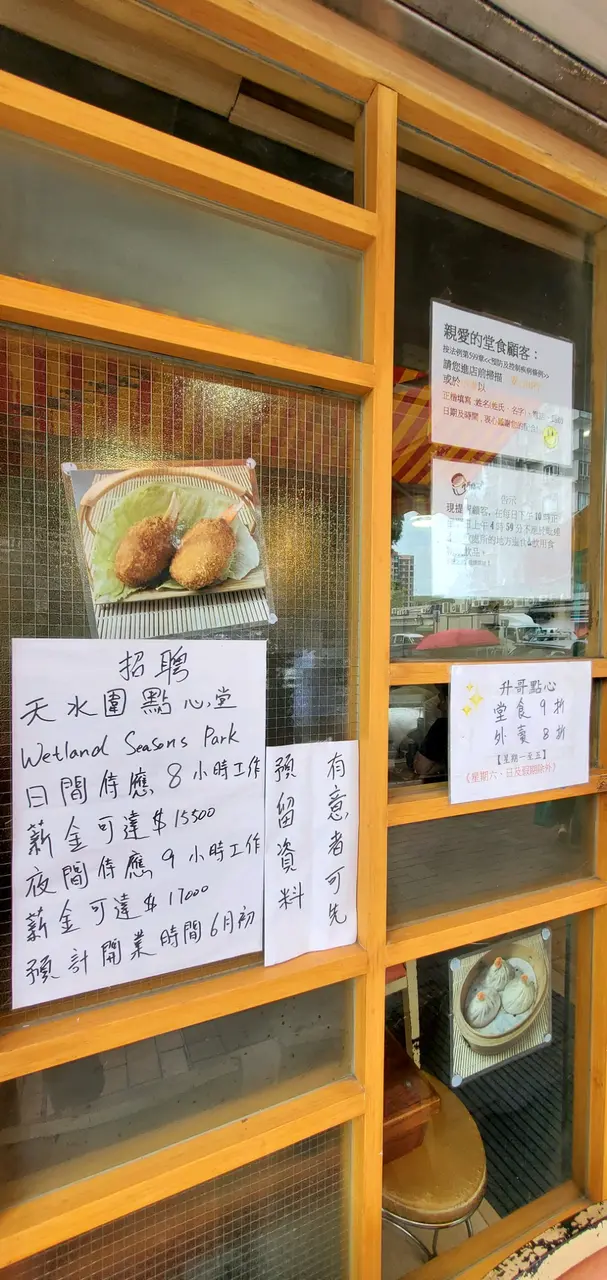 招聘
天水圍點心堂
Wetland Seasons Park
日間侍應 8小時工作
薪金可達$15500
夜間侍應 9小時工作
薪金可達$17000
預計開業時間6月初
有意者可先
預留資料
親愛的堂食顧客：
按法例第599章<<預防及控制疾病條例>>
請您進店前掃描
或於 以
正楷填寫:姓名(姓氏、名字)、
日期及時間，衷心感謝您的配合!
告示
現提 顧客，在每日下午10時正
上午4時59分不准
的地方 飲用食
飲品。
升哥點心
堂食9折
外賣8折
【星期一至五】
《星期六、日及假期除外》